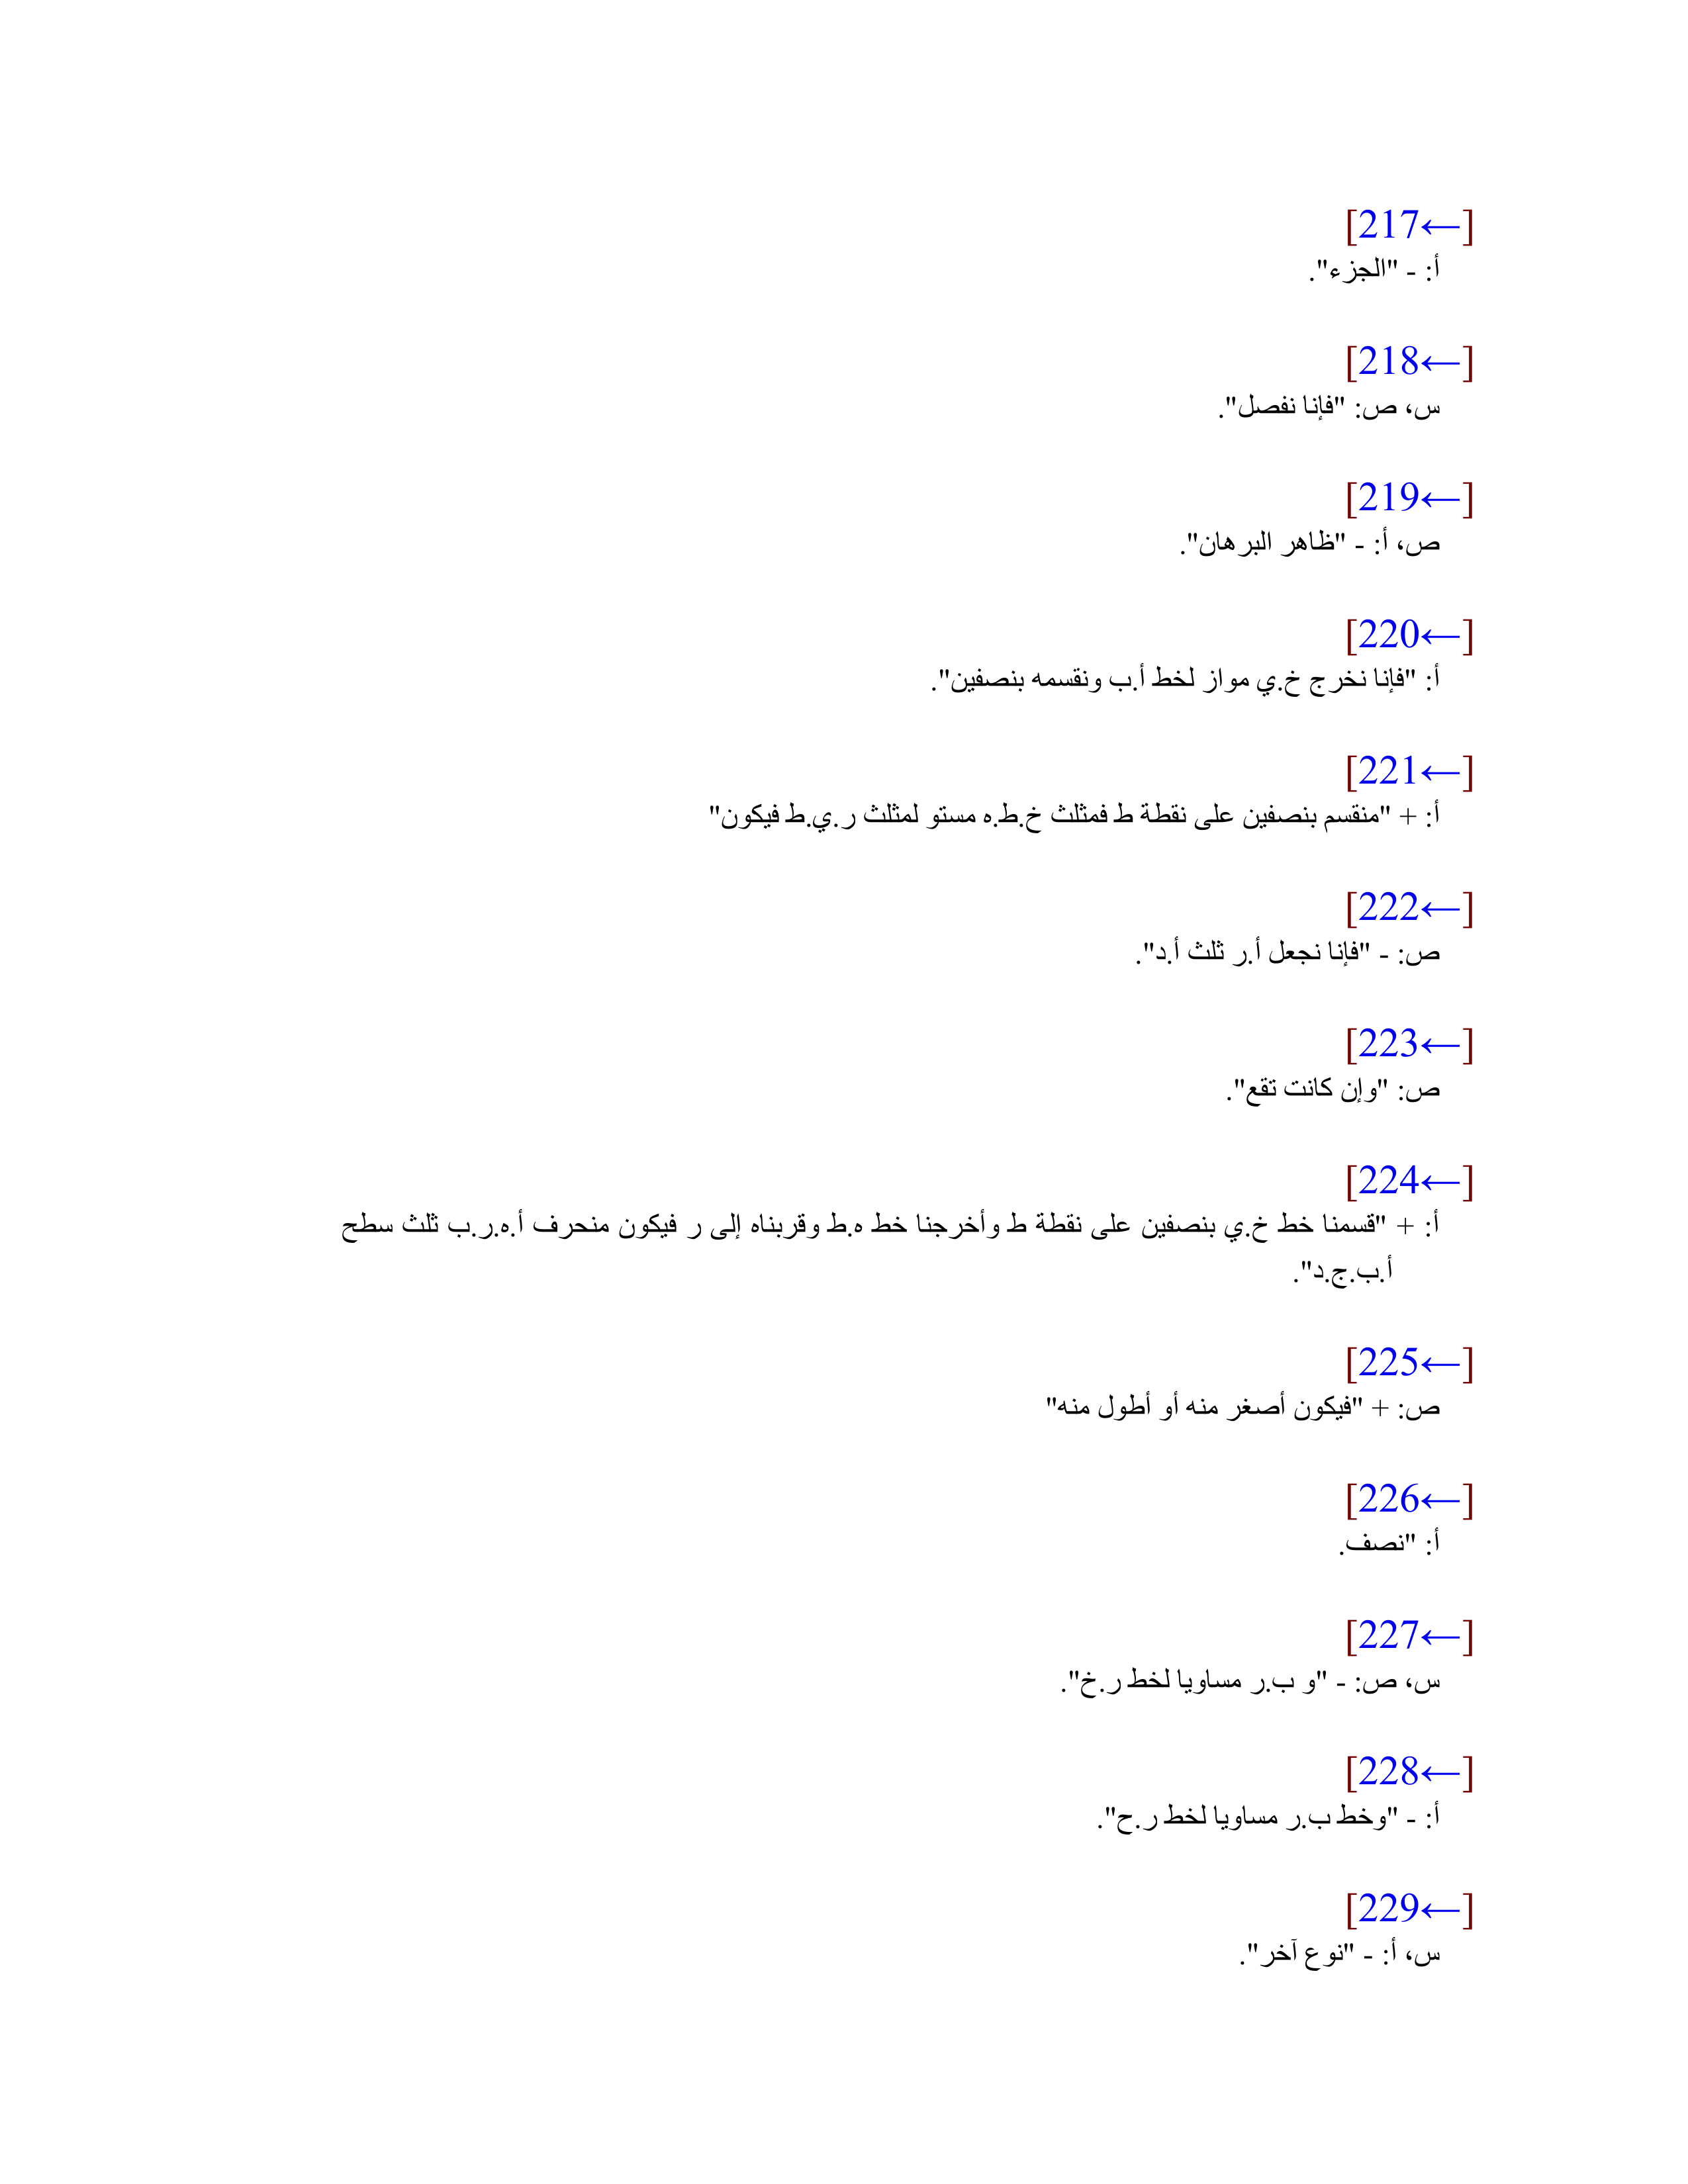 [←217]
أ: - "الجزء".
[←218]
س، ص: "فإنا نفصل".
[←219]
ص، أ: - "ظاهر البرهان".
[←220]
أ: "فإنا نخرج خ.ي مواز لخط أ.ب ونقسمه بنصفين".
[←221]
أ: + "منقسم بنصفين على نقطة ط فمثلث خ.ط.ه مستو لمثلث ر.ي.ط فيكون"
[←222]
ص: - "فإنا نجعل أ.ر ثلث أ.د".
[←223]
ص: "وإن كانت تقع".
[←224]
أ: + "قسمنا خط خ.ي بنصفين على نقطة ط وأخرجنا خط ه.ط وقربناه إلى ر فيكون منحرف أ.ه.ر.ب ثلث سطح
أ.ب.ج.د".
[←225]
ص: + "فيكون أصغر منه أو أطول منه"
[←226]
أ: "نصف.
[←227]
س، ص: - "و ب.ر مساويا لخط ر.خ".
[←228]
أ: - "وخط ب.ر مساويا لخط ر.ح".
[←229]
س، أ: - "نوع آخر".